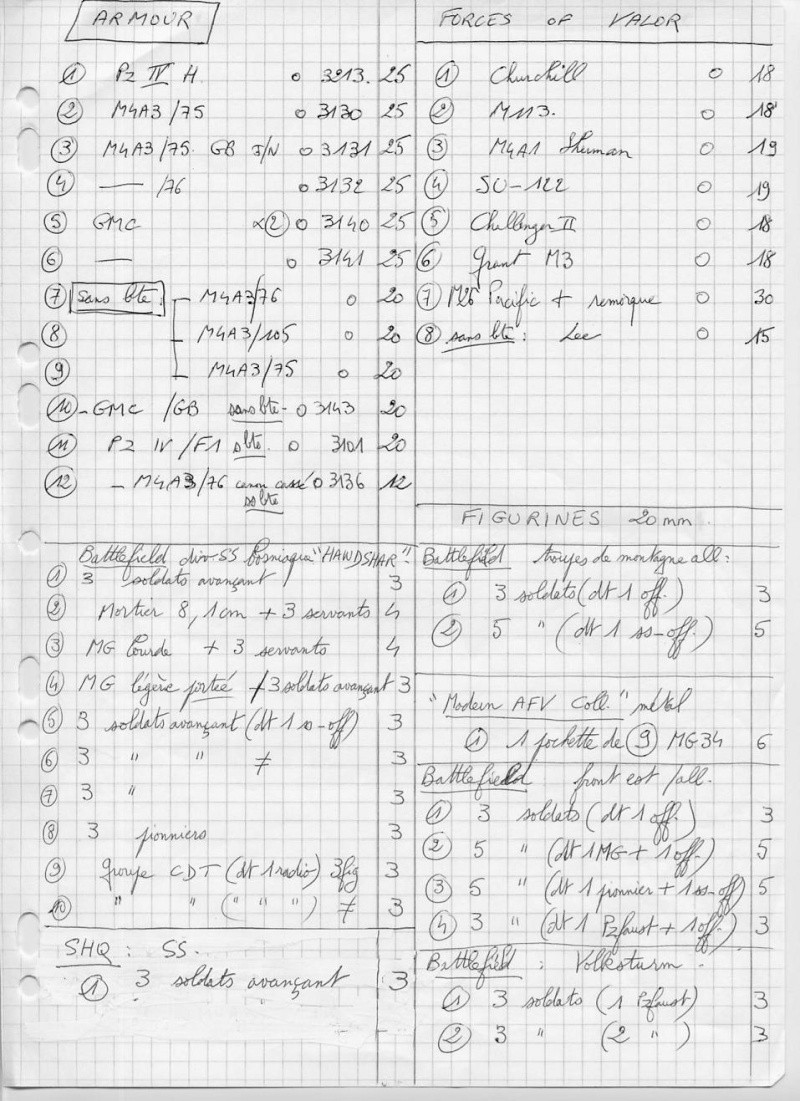 ARMOUR
① Pz IV H. o 3213. 25
② M4A3/75 o 3130 25
③ M4A3/75. GB J/N o 3131 25
④ — /76 o 3132 25
⑤ GMC x② o 3140 25
⑥ — o 3141 25
⑦ sans bte: M4A3/76 o 20
⑧ M4A3/105 o 20
⑨ M4A3/75 o 20
⑩ - GMC /GB sans bte - o 3143 20
⑪ Pz IV /F1 s/bte. o 3101 20
⑫ - M4A3/76 canon cassé o 3136 12
s/bte
Battlefield div-SS Bosniaque "HANDSHAR".
① 3 soldats avançant 3
② Mortier 8,1cm + 3 servants 4
③ MG lourde + 3 servants 4
④ MG légère portée + 3 soldats avançant 3
⑤ 3 soldats avançant (dt 1 ss-off) 3
⑥ 3 " " ≠ 3
⑦ 3 " 3
⑧ 3 pionniers 3
⑨ groupe CDT (dt 1 radio) 3fig 3
⑩ " " ( " " " ) ≠ 3
SHQ : SS.
① 3 soldats avançant 3
FORCES OF VALOR
① Churchill o 18
② M113. o 18
③ M4A1 Sherman o 19
④ SU-122 o 19
⑤ Challenger II o 18
⑥ Grant M3 o 18
⑦ M26 Pacific + remorque o 30
⑧ sans bte : Lee o 15
FIGURINES 20mm.
Battlefield troupes de montagne all:
① 3 soldats (dt 1 off.) 3
② 5 " (dt 1 ss-off.) 5
"Modern AFV Coll." métal
① 1 pochette de ⑨ MG34 6
Battlefield front est /all.
① 3 soldats (dt 1 off.) 3
② 5 " (dt 1 MG + 1 off.) 5
③ 5 " (dt 1 pionnier + 1 ss-off) 5
④ 3 " (dt 1 Pzfaust + 1 off.) 3
Battlefield : Volksturm -
① 3 soldats (1 Pzfaust) 3
② 3 " (2 " ) 3